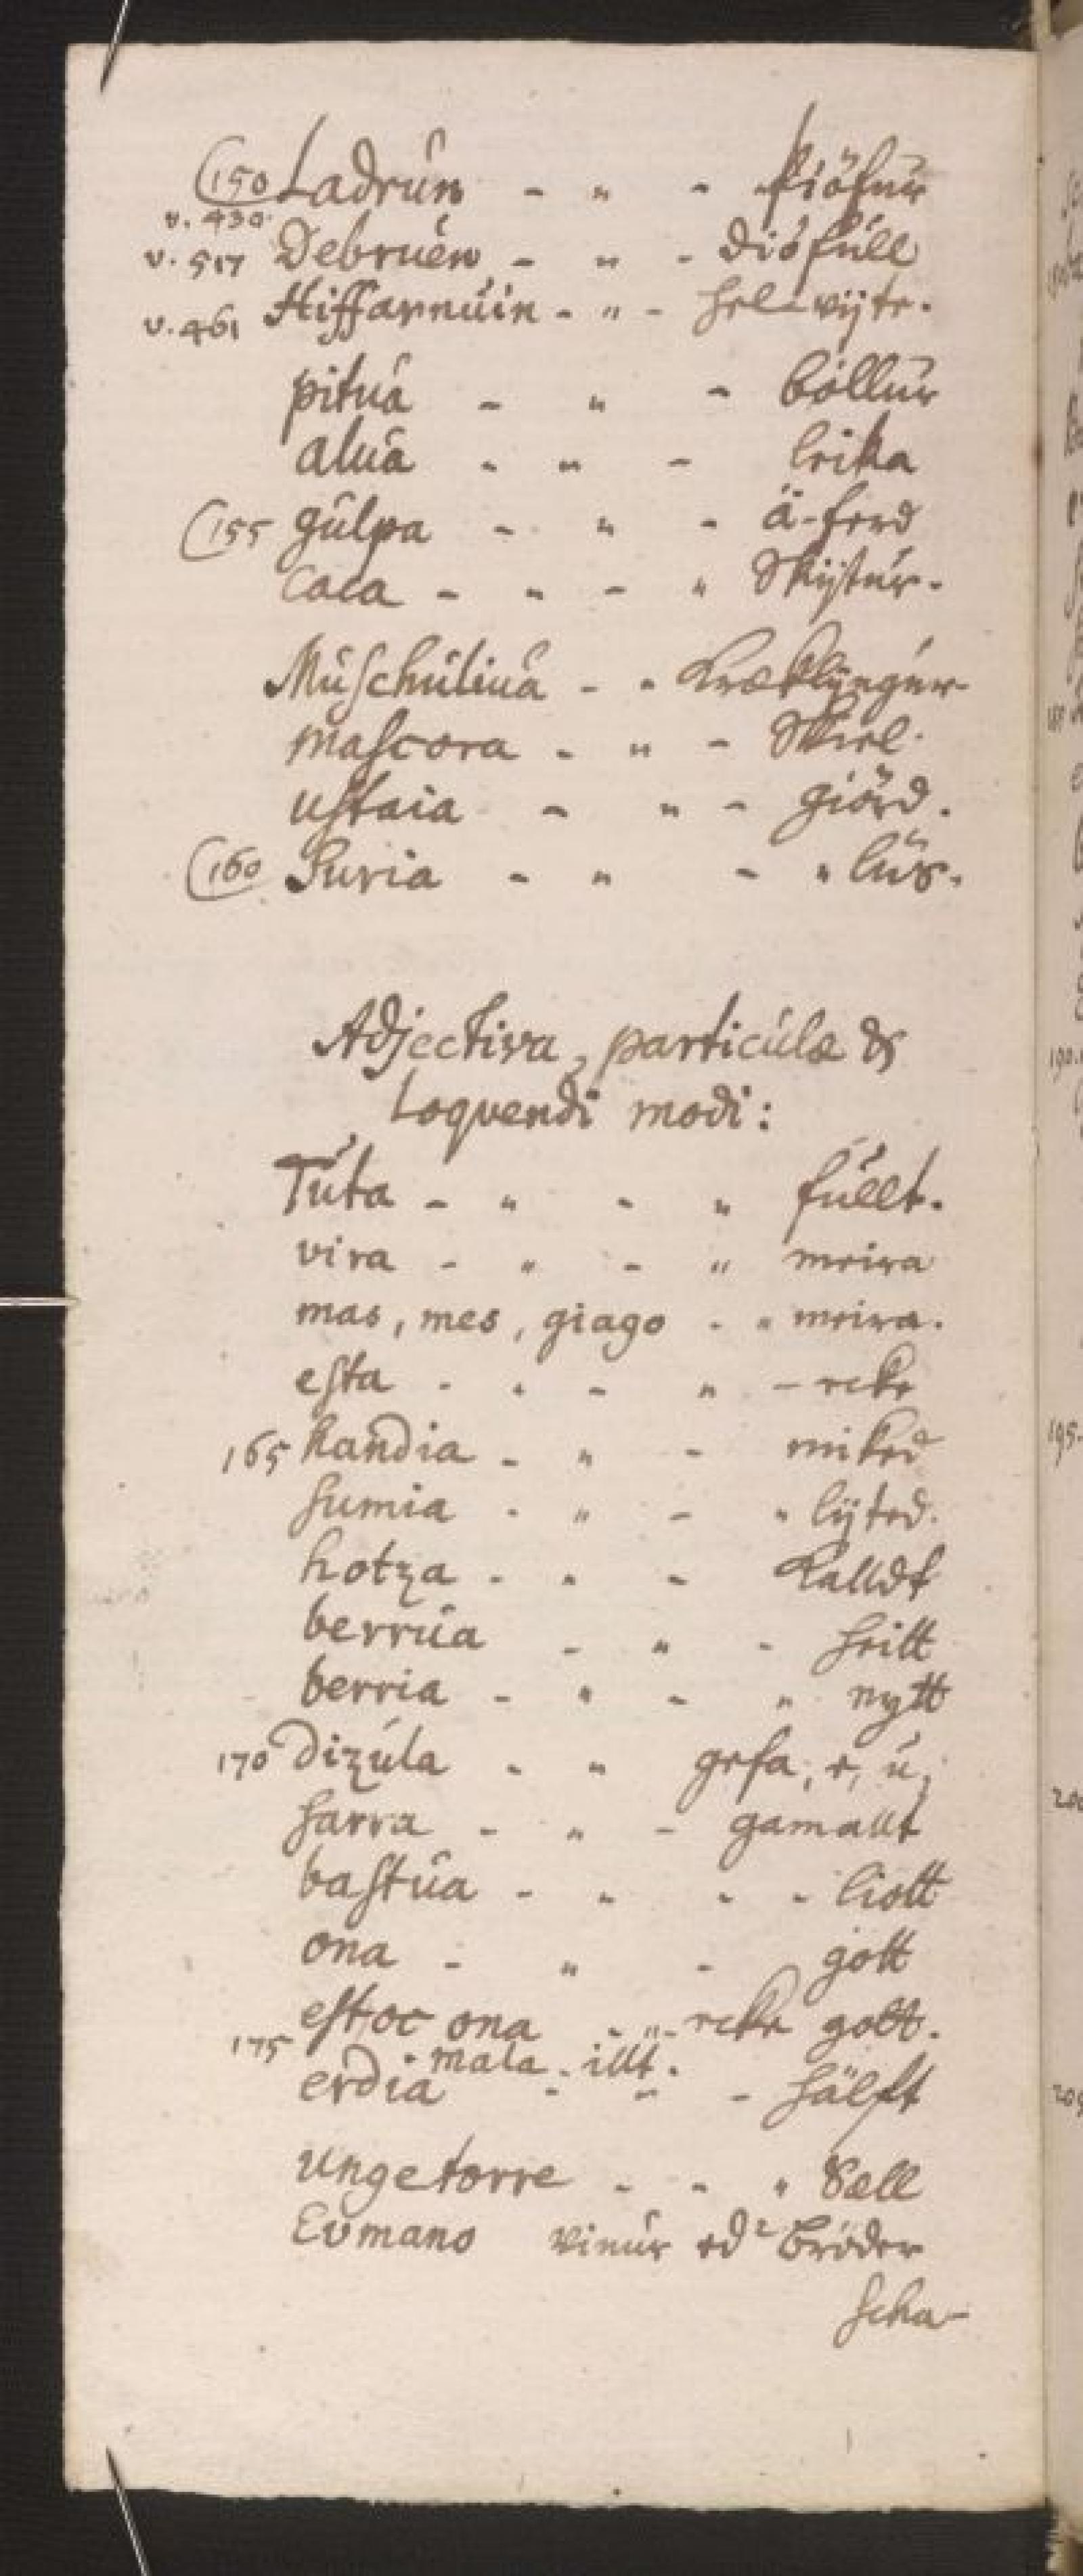 (150 Ladrún - " - þiöfur
v. 430.
v. 517 Debruen - " - diöfúll
v. 461 Hiffarnuin - " - hel-vijte.
pitua - " - böllur
alua - " - leika
(155 gulpa - " - ä-ferd
caca - " - " Skijtur.
Muschuliua - " Kræklingur
mascora - " - Skiel.
ustaia - " - giörd.
(160 Suria - " - " lús.
Adjectiva, particulæ &
Loqvendi modi:
Túta - " - " fúllt.
vira - " - " meira
mas, mes, giago - " meira.
esta - " - " - ecke
165 handia - " - miked
sumia - " - " lijted.
hotza - " - kalldt
berrua - " - heitt
berria - " - " nytt
170 dizúla - " gefa, e, u,
harra - " - gamallt
bastua - " - - liott
ona - " - gott
estoc ona - " - ecke gott.
175 mala - illt.
erdia - " - hälft
ungetorre - - " Sæll
Eomano vinur ed² bröder
scha-